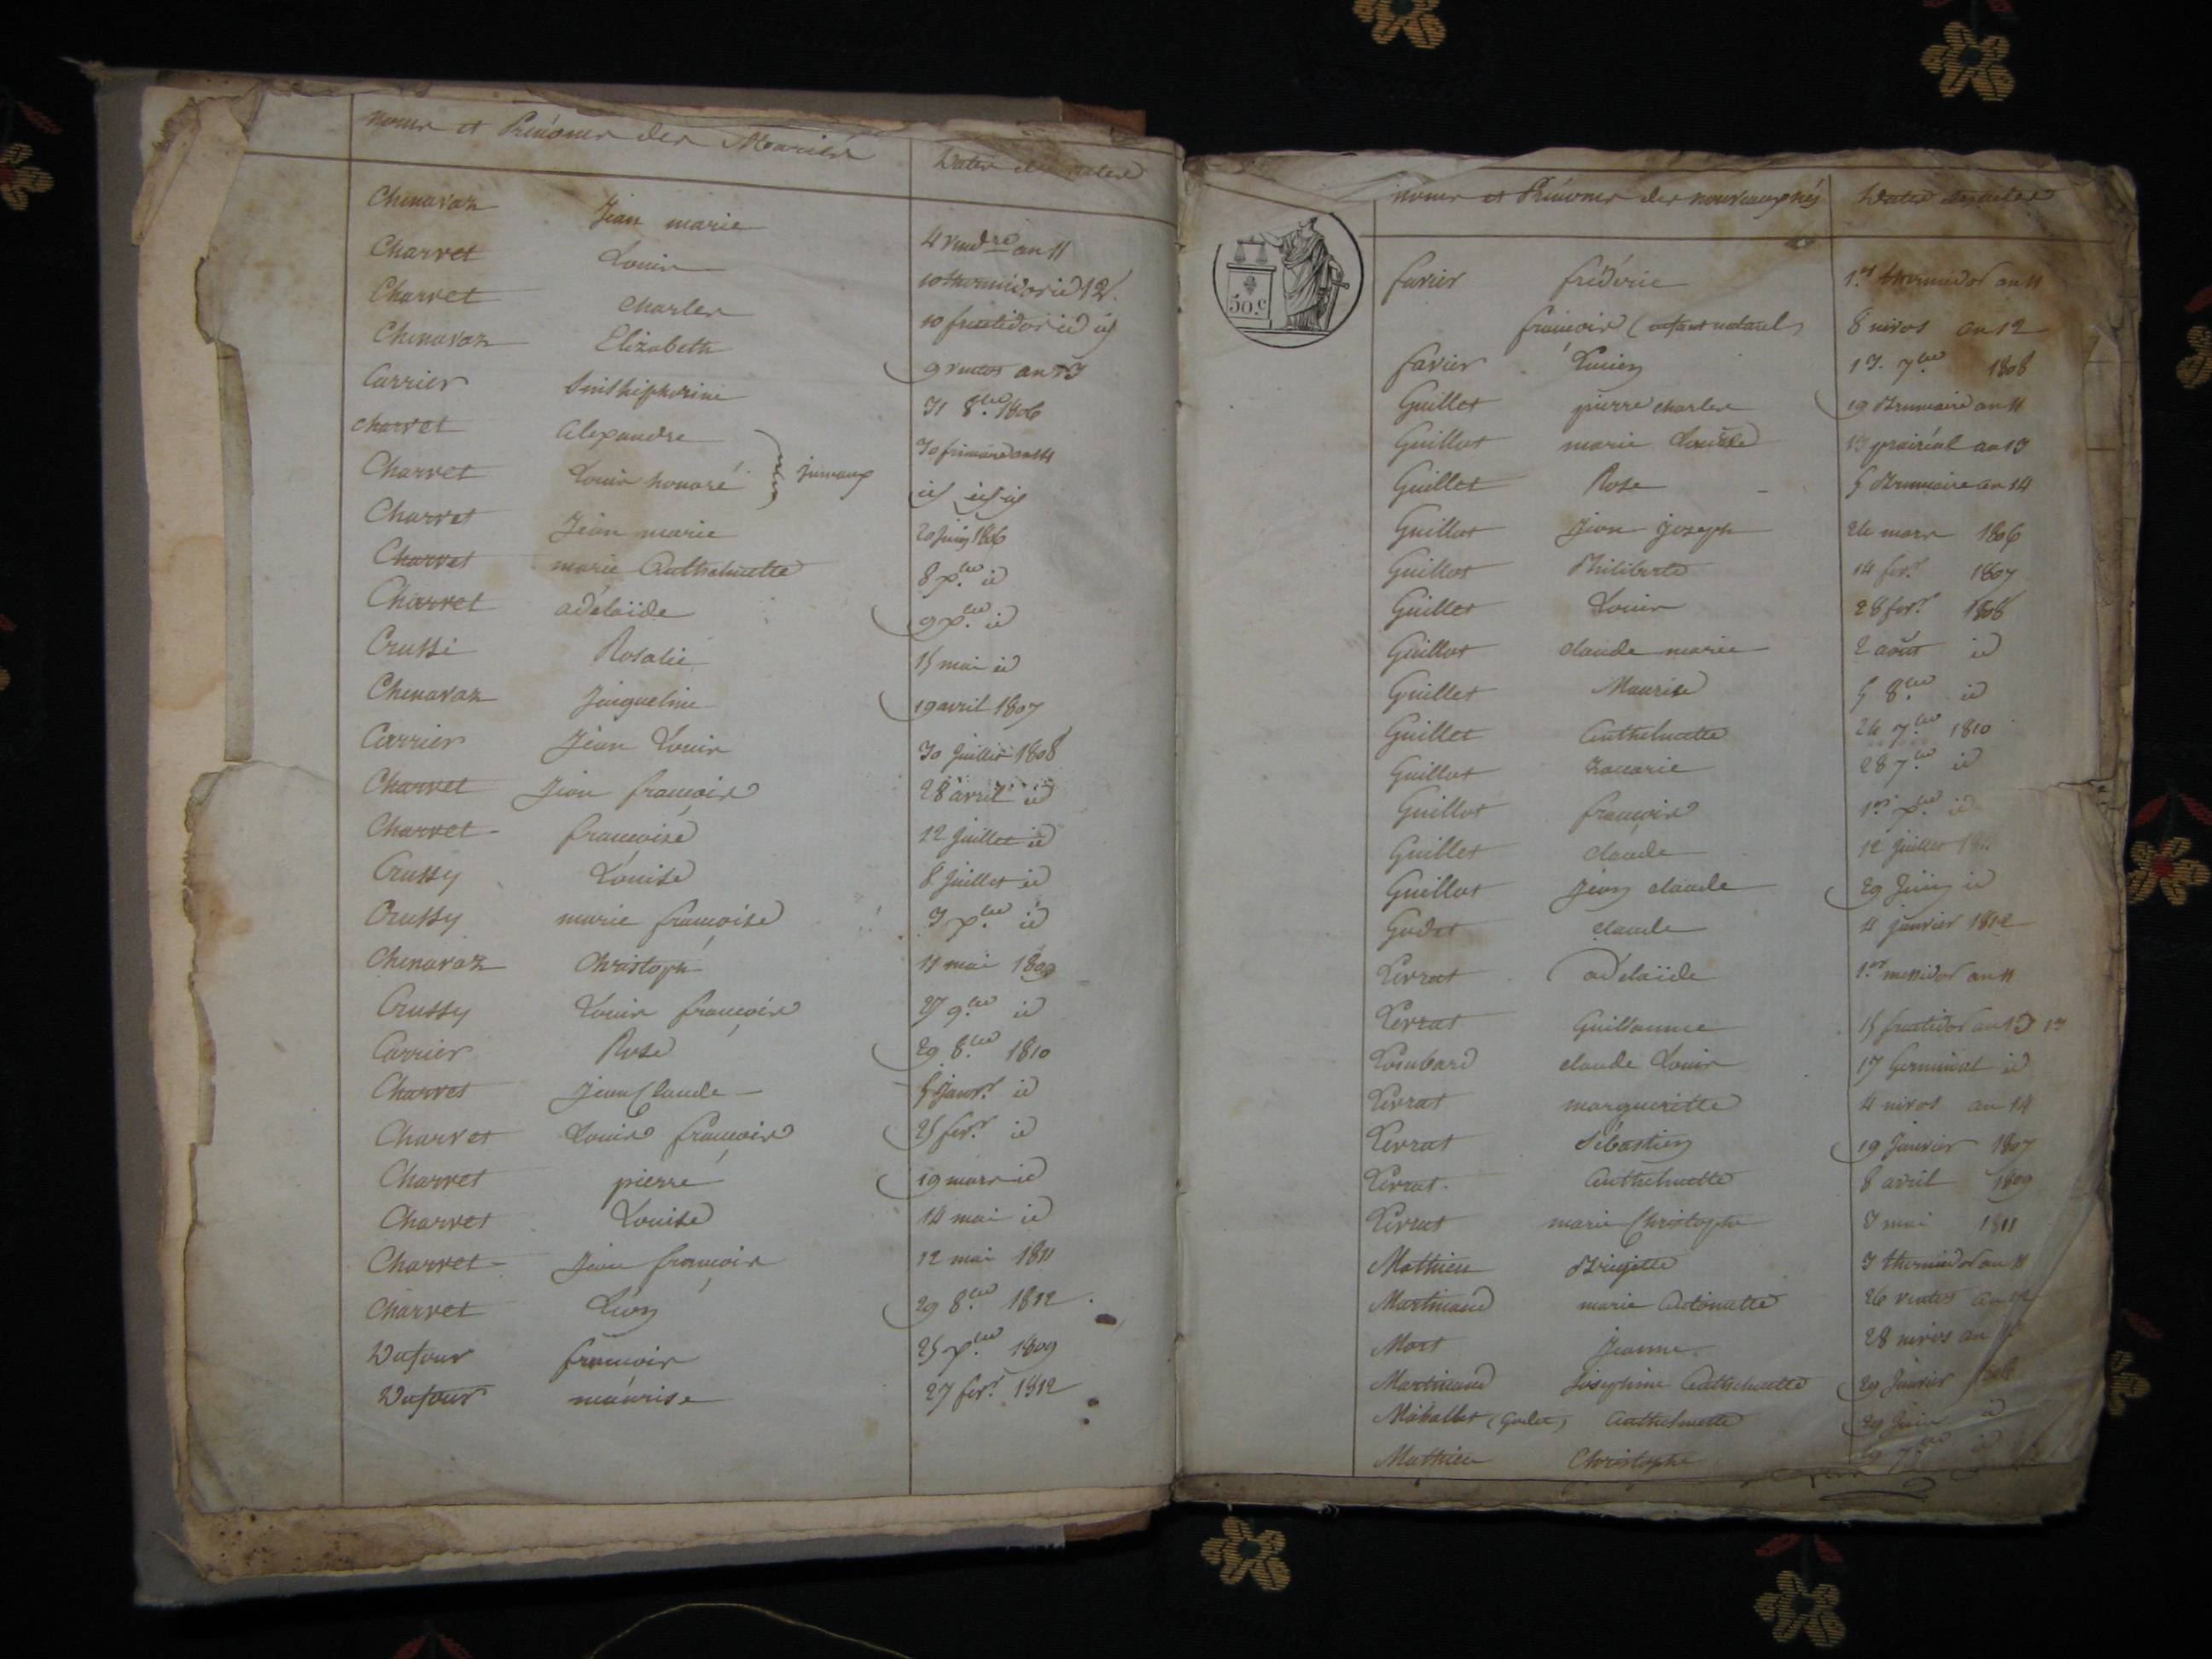 noms et Prénoms des Mariés Dates des actes
Chenavaz Jean marie 4 vend.re an 11
Charvet Louis 10 thermidor id 12
Charvet Charles 10 fructidor id id
Chenavaz Elizabeth 9 ventos an 13
Carrier Sinshiphorine 31 8.bre 1806
Charvet Alexandre 30 frimaire an 14
Charvet Louis honoré jumeaux id id id
Charvet Jean marie 20 juin 1806
Charvet marie Anthelmette 8 x.bre id
Charvet adélaïde 9 x.bre id
Crussi Rosalie 15 mai id
Chenavaz Jaqueline 19 avril 1807
Carrier Jean Louis 30 Juillet 1808
Charvet Jean françois 28 avril id
Charvet françoise 12 Juillet id
Crussy Louise 8 Juillet id
Crussy marie françoise 3 x.bre id
Chenavaz Christoph 11 mai 1809
Crussy Louis françois 27 9.bre id
Carrier Rose 29 8.bre 1810
Charvet Jean Claude 5 Janv.r id
Charvet Louis françois 25 fev.r id
Charvet pierre 19 mars id
Charvet Louise 14 mai id
Charvet Jean françois 12 mai 1811
Charvet Léon 29 8.bre 1812
Dufour françois 25 x.bre 1809
Dufour maurise 27 fev.r 1812
noms et Prénoms des nouveaux nés Dates des actes
50.c
favier frédéric 1.er thermidor an 11
françois (enfant naturel) 8 nivos an 12
favier Lucien 13. 7.bre 1808
Guillet pierre charles 19 Brumaire an 11
Guillot marie Louise 13 prairéal an 13
Guillet Rose 5 Brumaire an 14
Guillot Jean joseph 26 mars 1806
Guillot Philiberte 14 fev.r 1807
Guillet Louis 28 fev.r 1808
Guillot claude marie 2 août id
Guillet Maurise 5 8.bre id
Guillet Anthelmette 24 7.bre 1810
Guillot Zacarie 28 7.bre id
Guillot françois 1.er x.bre id
Guillet claude 12 Juillet
Guillot Jean claude 29 Juin id
Godet claude 4 janvier 1812
Lerrat adélaïde 1.er messidor an 11
Lerrat Guillaume 15 fructidor an 13 13
Lombard claude Louis 17 Germinal id
Lerrat margueritte 4 nivos an 14
Lerrat Sébastien 19 Janvier 1807
Lerrat Anthelmette 8 avril 1809
Lerrat marie Christophe 3 mai 1811
Mathieu Brigitte 3 thermidor an 11
Martinand marie Antoinette 26 ventos an 12
Mort Jeanne 28 nivos an
Martinand Joséphine Anthelmette 29 Janvier
Maballet (Godet) Anthelmette 29 Juin id
Mathieu Christophe 7.bre id